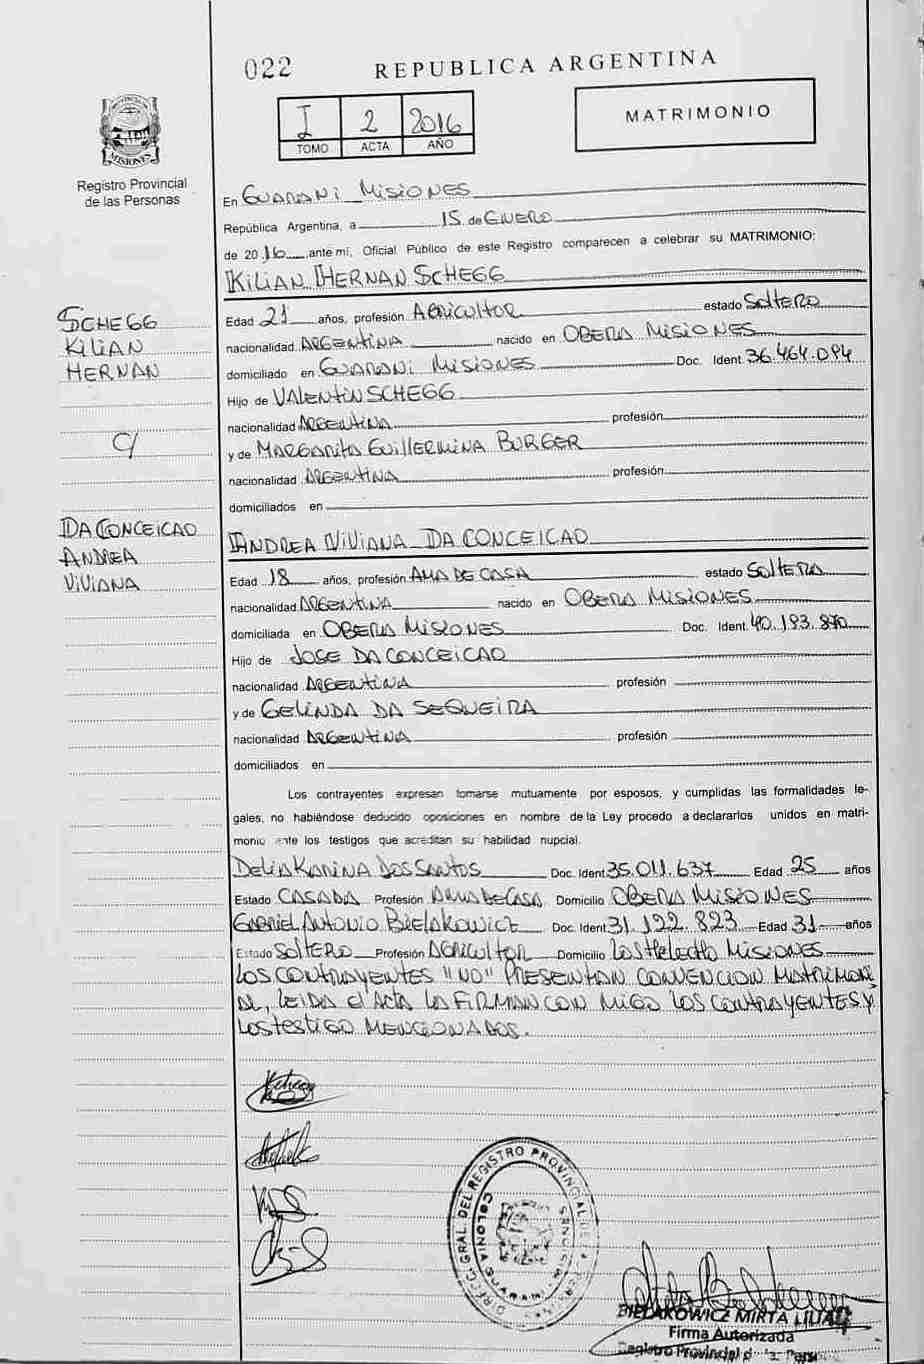 022
REPUBLICA ARGENTINA
I 2 2016
TOMO ACTA AÑO
MATRIMONIO
MISIONES
Registro Provincial
de las Personas
En GUARANI MISIONES
República Argentina, a 15 de ENERO
de 2016 ante mí, Oficial Público de este Registro comparecen a celebrar su MATRIMONIO:
KILIAN HERNAN SCHEGG
SCHEGG
KILIAN
HERNAN
C/
DA CONCEICAO
ANDREA
VIVIANA
Edad 21 años, profesión AGRICULTOR estado SOLTERO
nacionalidad ARGENTINA nacido en OBERA MISIONES
domiciliado en GUARANI MISIONES Doc. Ident. 36.464.094
Hijo de VALENTIN SCHEGG
nacionalidad ARGENTINA profesión
y de MARGARITA GUILLERMINA BURGER
nacionalidad ARGENTINA profesión
domiciliados en
ANDREA VIVIANA DA CONCEICAO
Edad 18 años, profesión AMA DE CASA estado SOLTERA
nacionalidad ARGENTINA nacido en OBERA MISIONES
domiciliada en OBERA MISIONES Doc. Ident. 40.193.870
Hijo de JOSE DA CONCEICAO
nacionalidad ARGENTINA profesión
y de GELINDA DA SEQUEIRA
nacionalidad ARGENTINA profesión
domiciliados en
Los contrayentes expresan tomarse mutuamente por esposos, y cumplidas las formalidades le-
gales, no habiéndose deducido oposiciones en nombre de la Ley procedo a declararlos unidos en matri-
monio ante los testigos que acreditan su habilidad nupcial.
DELIA KARINA DOS SANTOS Doc. Ident. 35.011.637 Edad 25 años
Estado CASADA Profesión AMA DE CASA Domicilio OBERA MISIONES
GABRIEL ANTONIO BIELAKOWICZ Doc. Ident. 31.122.823 Edad 31 años
Estado SOLTERO Profesión AGRICULTOR Domicilio LOS HELECHO MISIONES
LOS CONTRAYENTES "NO" PRESENTAN CONVENCION MATRIMONI
AL, LEIDA el ACTA LA FIRMAN CON MIGO LOS CONTRAYENTES Y
LOS TESTIGO MENCIONADOS.
DIRECC. GRAL. DEL REGISTRO PROVINCIAL DE LAS PERSONAS
COLONIA GUARANI
MISIONES
BIELAKOWICZ MIRTA LILIA
Firma Autorizada
Registro Provincial d Pers